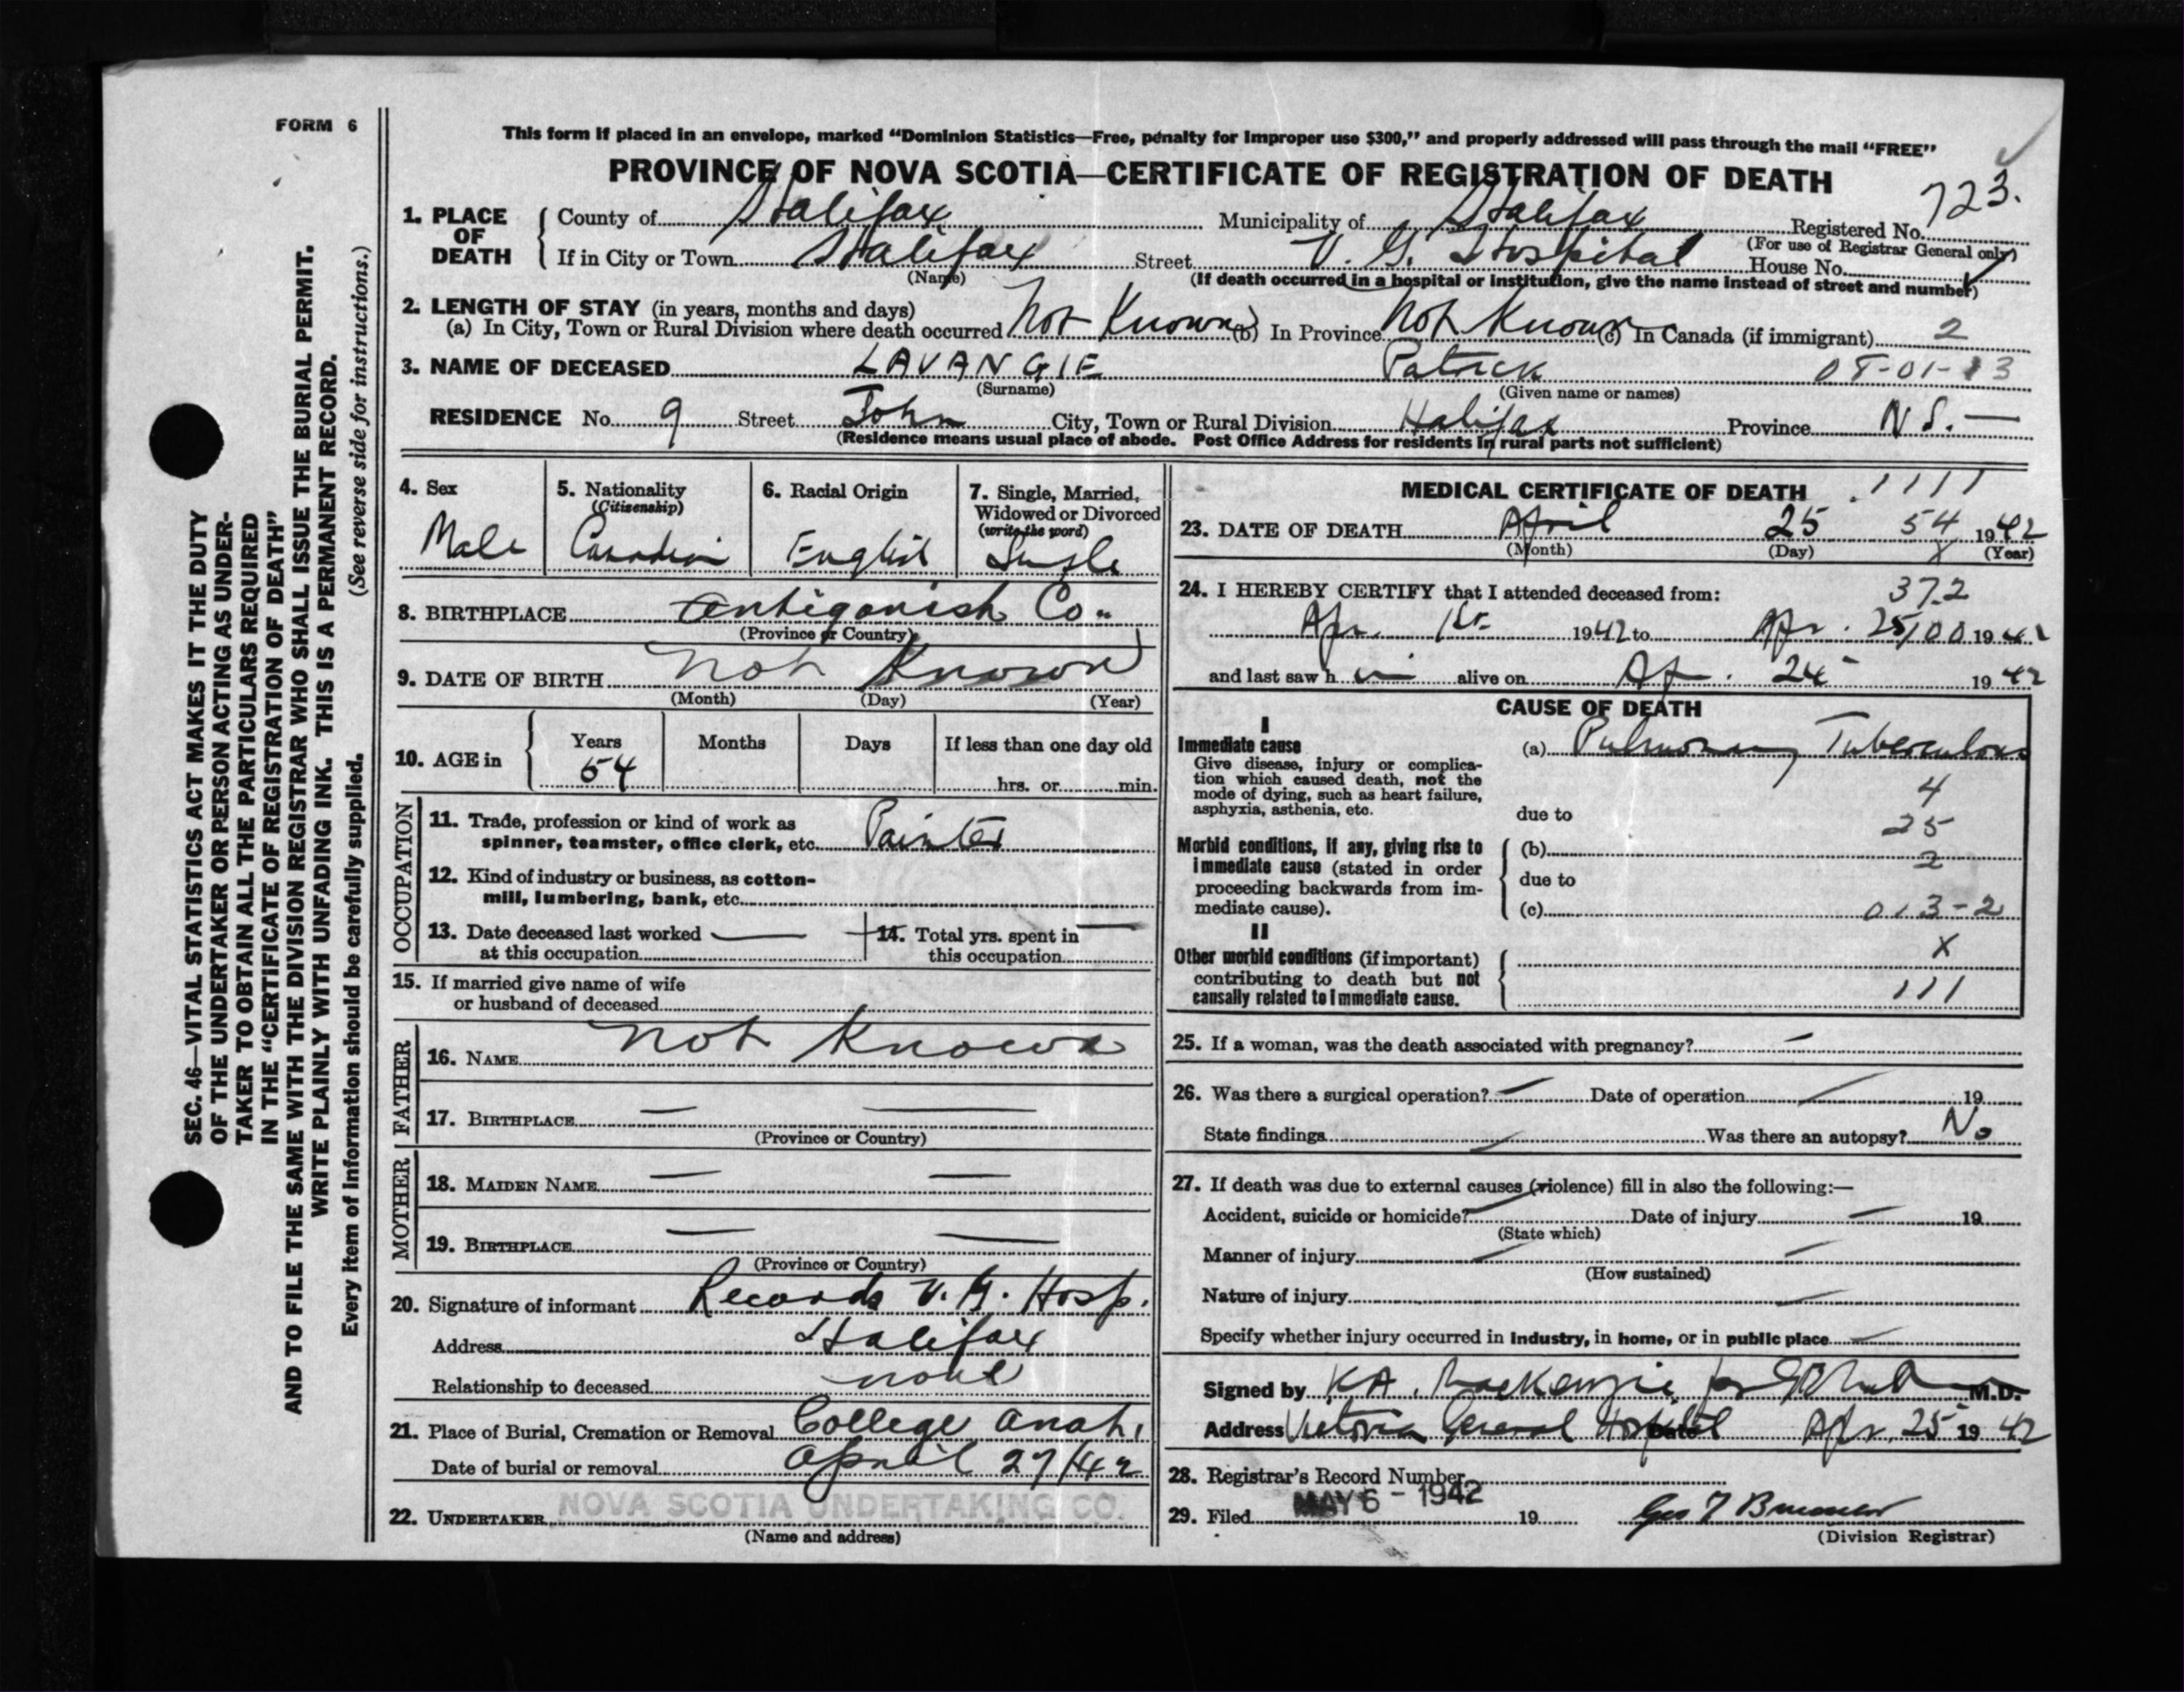 FORM 6
This form if placed in an envelope, marked “Dominion Statistics—Free, penalty for improper use $300,” and properly addressed will pass through the mail “FREE”
PROVINCE OF NOVA SCOTIA—CERTIFICATE OF REGISTRATION OF DEATH
723.
1. PLACE OF DEATH
County of Halifax Municipality of Halifax Registered No.
(For use of Registrar General only)
If in City or Town Halifax Street V. G. Hospital House No.
(Name) (If death occurred in a hospital or institution, give the name instead of street and number)
2. LENGTH OF STAY (in years, months and days)
(a) In City, Town or Rural Division where death occurred Not Known (b) In Province Not Known (c) In Canada (if immigrant) 2
3. NAME OF DECEASED LAVANGIE Patrick
(Surname) (Given name or names)
RESIDENCE No. 9 Street John City, Town or Rural Division Halifax Province N.S. —
(Residence means usual place of abode. Post Office Address for residents in rural parts not sufficient)
4. Sex
Male
5. Nationality
(Citizenship)
Canadian
6. Racial Origin
English
7. Single, Married, Widowed or Divorced
(write the word)
Single
8. BIRTHPLACE Antigonish Co.
(Province or Country)
9. DATE OF BIRTH Not Known
(Month) (Day) (Year)
10. AGE in
Years Months Days If less than one day old
54 hrs. or min.
OCCUPATION
11. Trade, profession or kind of work as
spinner, teamster, office clerk, etc. Painter
12. Kind of industry or business, as cotton-
mill, lumbering, bank, etc.
13. Date deceased last worked —
at this occupation
14. Total yrs. spent in —
this occupation
15. If married give name of wife
or husband of deceased
FATHER
16. NAME Not Known
17. BIRTHPLACE — —
(Province or Country)
MOTHER
18. MAIDEN NAME — —
19. BIRTHPLACE — —
(Province or Country)
20. Signature of informant Records V. G. Hosp.
Address Halifax
Relationship to deceased none
21. Place of Burial, Cremation or Removal College
Date of burial or removal April 27/42
22. UNDERTAKER NOVA SCOTIA UNDERTAKING CO.
(Name and address)
MEDICAL CERTIFICATE OF DEATH 1111
23. DATE OF DEATH April 25 54 1942
(Month) (Day) X (Year)
24. I HEREBY CERTIFY that I attended deceased from: 372
Apr. 1st 1942 to Apr. 25 100 1942
and last saw h im alive on Ap. 1942
CAUSE OF DEATH
I
Immediate cause
Give disease, injury or complica-
tion which caused death, not the
mode of dying, such as heart failure,
asphyxia, asthenia, etc.
(a) Pulmonary Tuberculosis
4
due to
25
Morbid conditions, if any, giving rise to
immediate cause (stated in order
proceeding backwards from im-
mediate cause).
(b)
2
due to
(c) 013-2
II
Other morbid conditions (if important)
contributing to death but not
causally related to immediate cause.
X
111
25. If a woman, was the death associated with pregnancy? —
26. Was there a surgical operation? — Date of operation — 19
State findings — Was there an autopsy? No
27. If death was due to external causes (violence) fill in also the following:—
Accident, suicide or homicide? — Date of injury — 19
(State which)
Manner of injury — —
(How sustained)
Nature of injury —
Specify whether injury occurred in industry, in home, or in public place —
Signed by K A. MacKenzie for M.D.
Address Victoria General Hospital Date Apr. 25 1942
28. Registrar’s Record Number
29. Filed MAY 6 - 1942 19
(Division Registrar)
SEC. 46—VITAL STATISTICS ACT MAKES IT THE DUTY
OF THE UNDERTAKER OR PERSON ACTING AS UNDER-
TAKER TO OBTAIN ALL THE PARTICULARS REQUIRED
IN THE “CERTIFICATE OF REGISTRATION OF DEATH”
AND TO FILE THE SAME WITH THE DIVISION REGISTRAR WHO SHALL ISSUE THE BURIAL PERMIT.
WRITE PLAINLY WITH UNFADING INK. THIS IS A PERMANENT RECORD.
Every item of information should be carefully supplied. (See reverse side for instructions.)